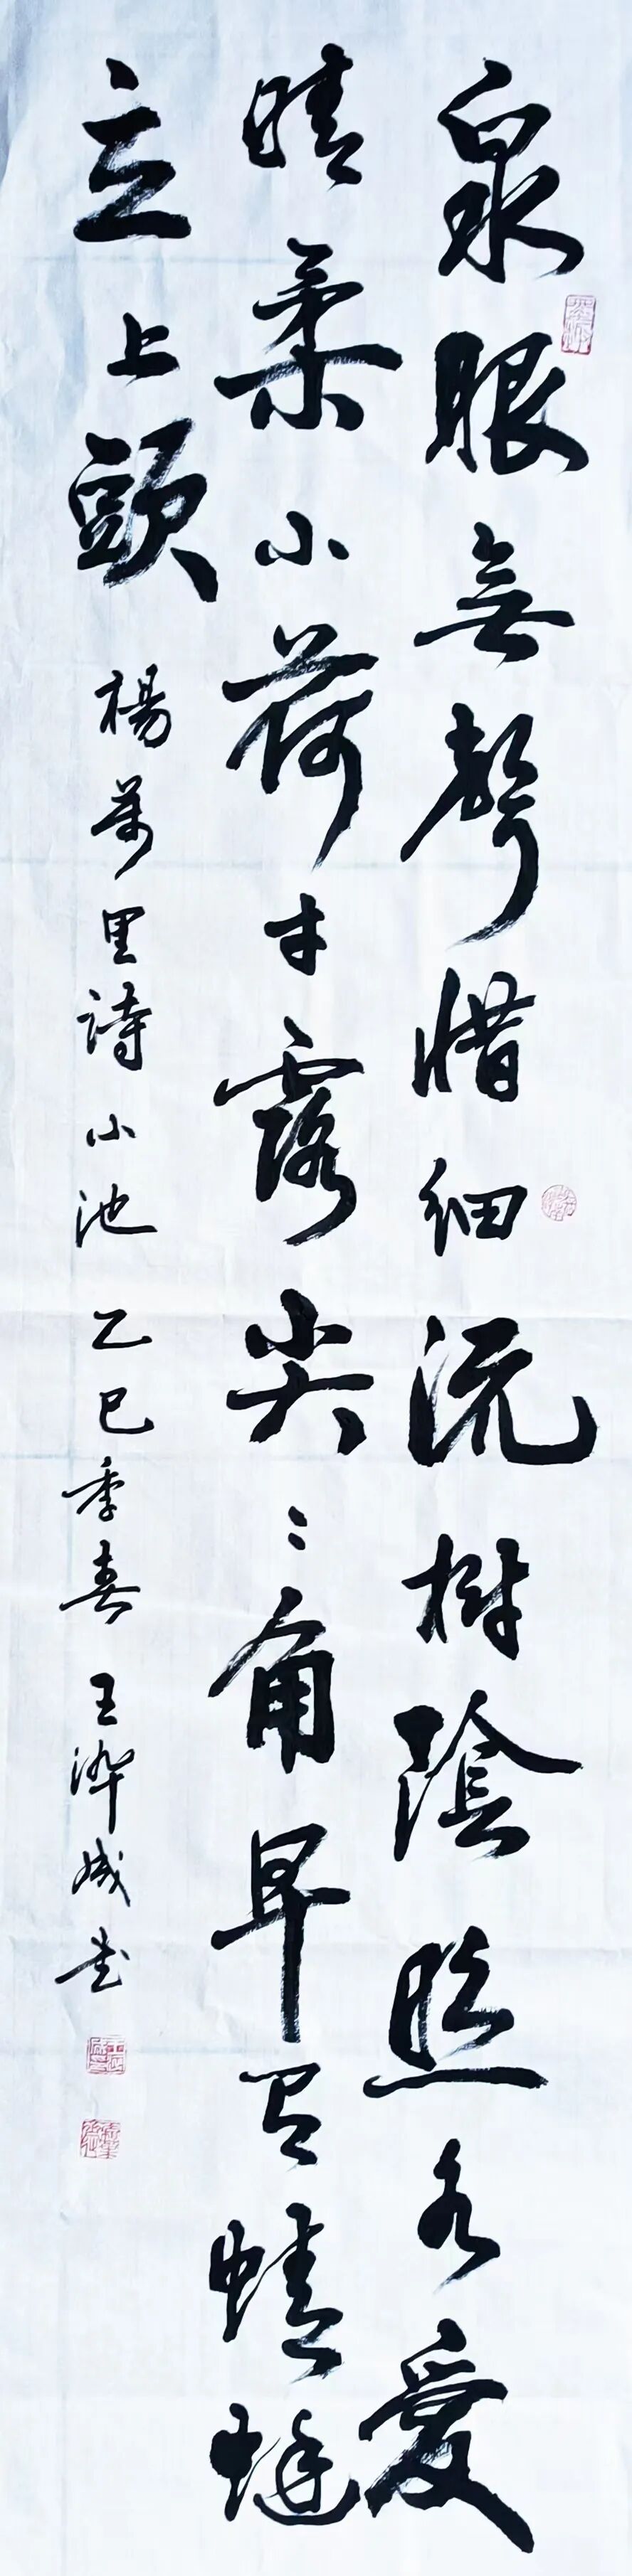 泉眼無聲惜細流樹陰照水愛
晴柔小荷才露尖〻角早有蜻蜓
立上頭 楊萬里詩小池 乙巳季春 王成書